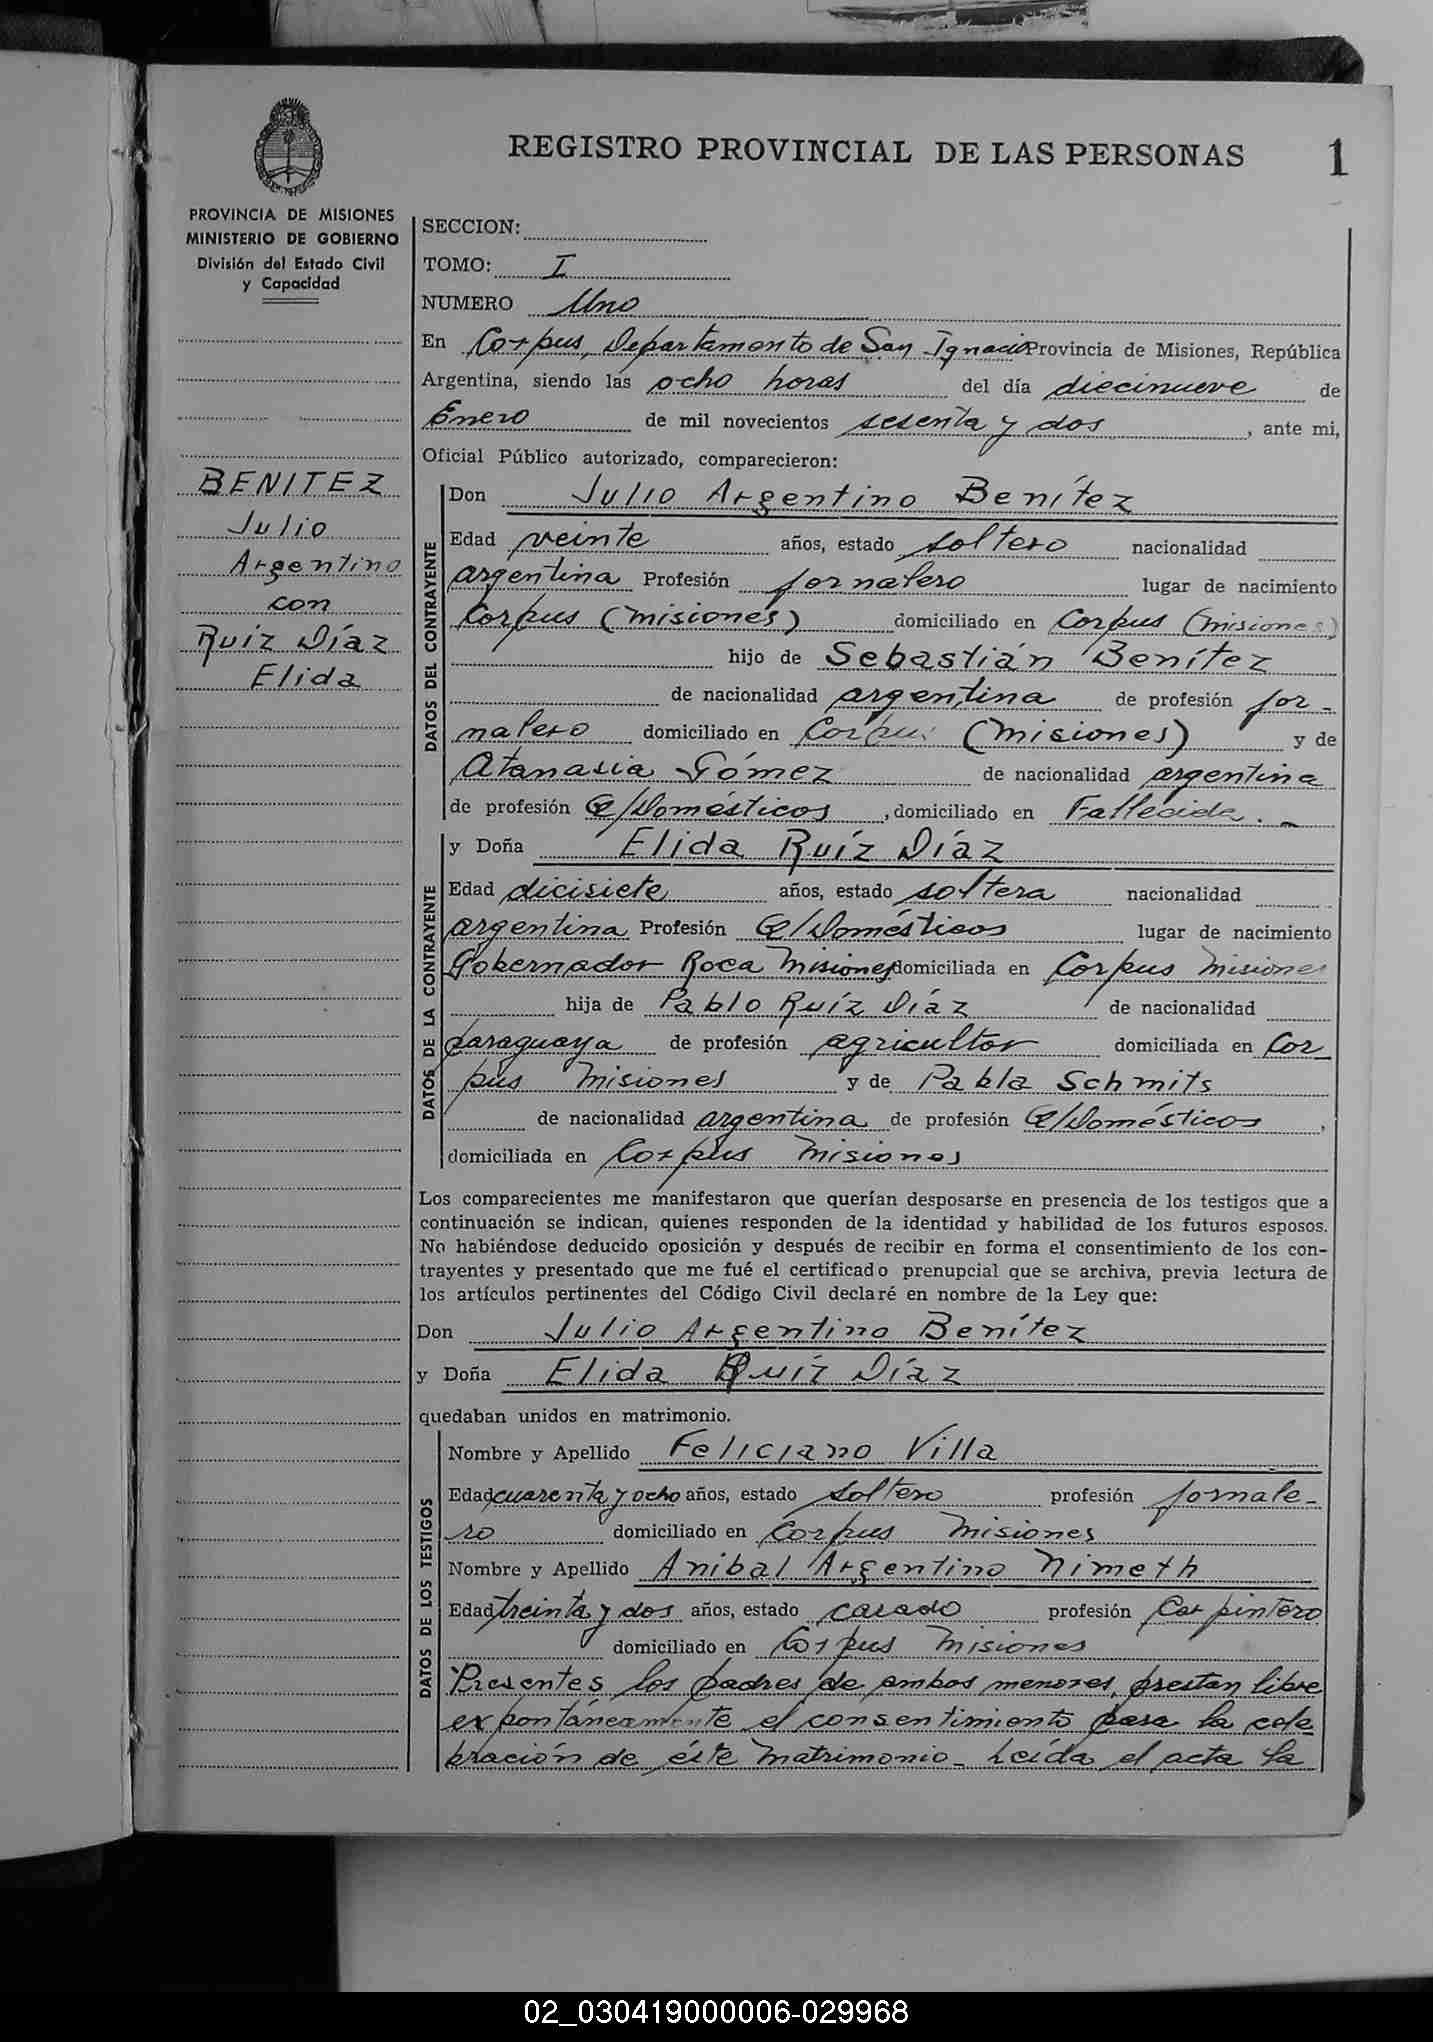 REGISTRO PROVINCIAL DE LAS PERSONAS
1
PROVINCIA DE MISIONES
MINISTERIO DE GOBIERNO
División del Estado Civil
y Capacidad
BENITEZ
Julio
Argentino
con
Ruíz Díaz
Elida
SECCION:
TOMO: I
NUMERO Uno
En Corpus, Departamento de San Ignacio Provincia de Misiones, República
Argentina, siendo las ocho horas del día diecinueve de
Enero de mil novecientos sesenta y dos, ante mi,
Oficial Público autorizado, comparecieron:
DATOS DEL CONTRAYENTE
Don Julio Argentino Benítez
Edad veinte años, estado soltero nacionalidad
argentina Profesión jornalero lugar de nacimiento
Corpus (Misiones) domiciliado en Corpus (Misiones)
hijo de Sebastián Benítez
de nacionalidad argentina de profesión jor-
nalero domiciliado en Corpus (Misiones) y de
Atanasia Gómez de nacionalidad argentina
de profesión Q/Domésticos, domiciliado en Fallecida.-
DATOS DE LA CONTRAYENTE
y Doña Elida Ruíz Díaz
Edad dicisiete años, estado soltera nacionalidad
argentina Profesión Q/Domésticos lugar de nacimiento
Gobernador Roca Misiones domiciliada en Corpus Misiones
hija de Pablo Ruíz Díaz de nacionalidad
paraguaya de profesión agricultor domiciliada en Cor
pus Misiones y de Pabla Schmits
de nacionalidad argentina de profesión Q/Domésticos,
domiciliada en Corpus Misiones
Los comparecientes me manifestaron que querían desposarse en presencia de los testigos que a
continuación se indican, quienes responden de la identidad y habilidad de los futuros esposos.
No habiéndose deducido oposición y después de recibir en forma el consentimiento de los con-
trayentes y presentado que me fué el certificado prenupcial que se archiva, previa lectura de
los artículos pertinentes del Código Civil declaré en nombre de la Ley que:
Don Julio Argentino Benítez
y Doña Elida Ruíz Díaz
quedaban unidos en matrimonio.
DATOS DE LOS TESTIGOS
Nombre y Apellido Feliciano Villa
Edad cuarenta y ocho años, estado soltero profesión jornale-
ro domiciliado en Corpus Misiones
Nombre y Apellido Anibal Argentino Nimeth
Edad treinta y dos años, estado casado profesión Carpintero
domiciliado en Corpus Misiones
Presentes los padres de ambos menores, prestan libre
expontáneamente el consentimiento para la cele
bración de éste matrimonio - Leída el acta la
02_030419000006-029968